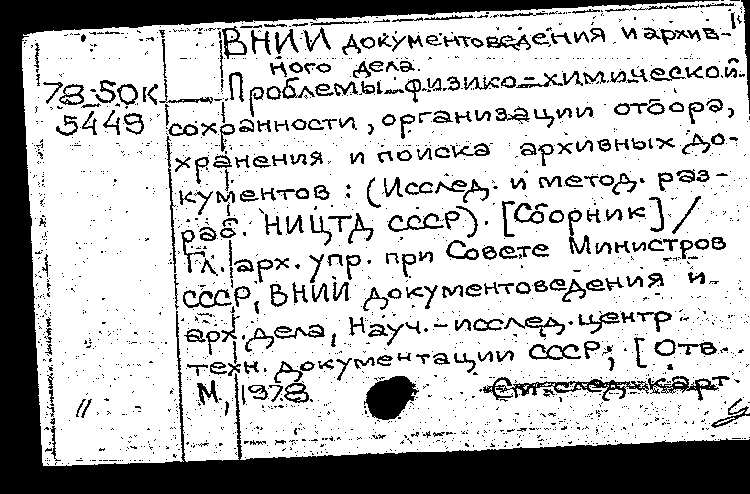 ВНИИ документоведения и архив-
ного дела.
78-50К Проблемы физико-химической
5449 сохранности, организации отбора,
хранения и поиска архивных до-
кументов : (Исслед. и метод. раз-
раб. НИЦТД СССР). [Сборник] /
Гл. арх. упр. при Совете Министров
СССР, ВНИИ документоведения и
арх. дела, Науч.-исслед. центр
техн. документации СССР; [Отв.
М, 1978. См. след. карт.